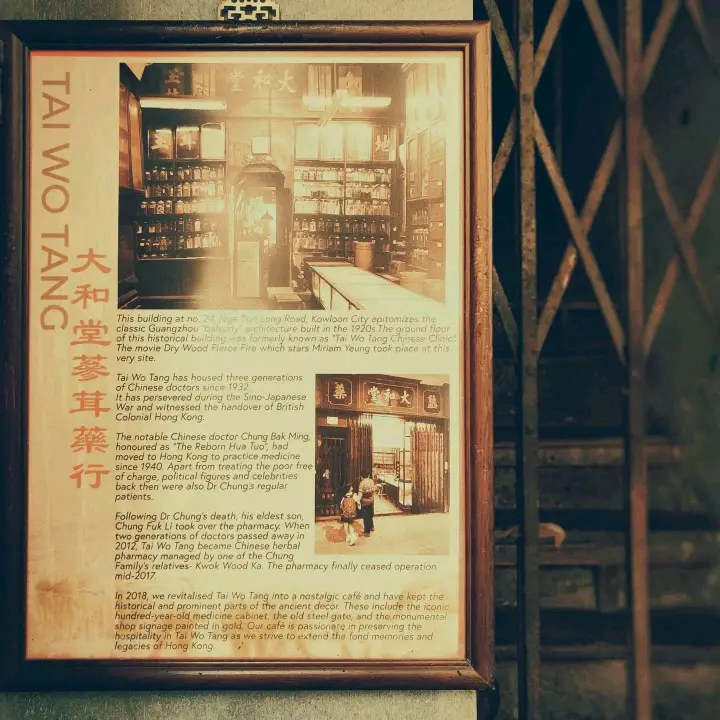 TAI WO TANG
大和堂蔘茸藥行
大和堂
This building at no. 24, Nga Tsin Long Road, Kowloon City epitomizes the
classic Guangzhou "balcony" architecture built in the 1920s.The ground floor
of this historical building was formerly known as "Tai Wo Tang Chinese Clinic".
The movie Dry Wood Fierce Fire which stars Miriam Yeung took place at this
very site.
Tai Wo Tang has housed three generations
of Chinese doctors since 1932.
It has persevered during the Sino-Japanese
War and witnessed the handover of British
Colonial Hong Kong.
The notable Chinese doctor Chung Bak Ming,
honoured as "The Reborn Hua Tuo", had
moved to Hong Kong to practice medicine
since 1940. Apart from treating the poor free
of charge, political figures and celebrities
back then were also Dr Chung's regular
patients.
藥 堂和大
Following Dr Chung's death, his eldest son,
Chung Fuk Li took over the pharmacy. When
two generations of doctors passed away in
2012, Tai Wo Tang became Chinese herbal
pharmacy managed by one of the Chung
Family's relatives- Kwok Wood Ka. The pharmacy finally ceased operation
mid-2017.
In 2018, we revitalised Tai Wo Tang into a nostalgic café and have kept the
historical and prominent parts of the ancient decor. These include the iconic
hundred-year-old medicine cabinet, the old steel gate, and the monumental
shop signage painted in gold. Our café is passionate in preserving the
hospitality in Tai Wo Tang as we strive to extend the fond memories and
legacies of Hong Kong.